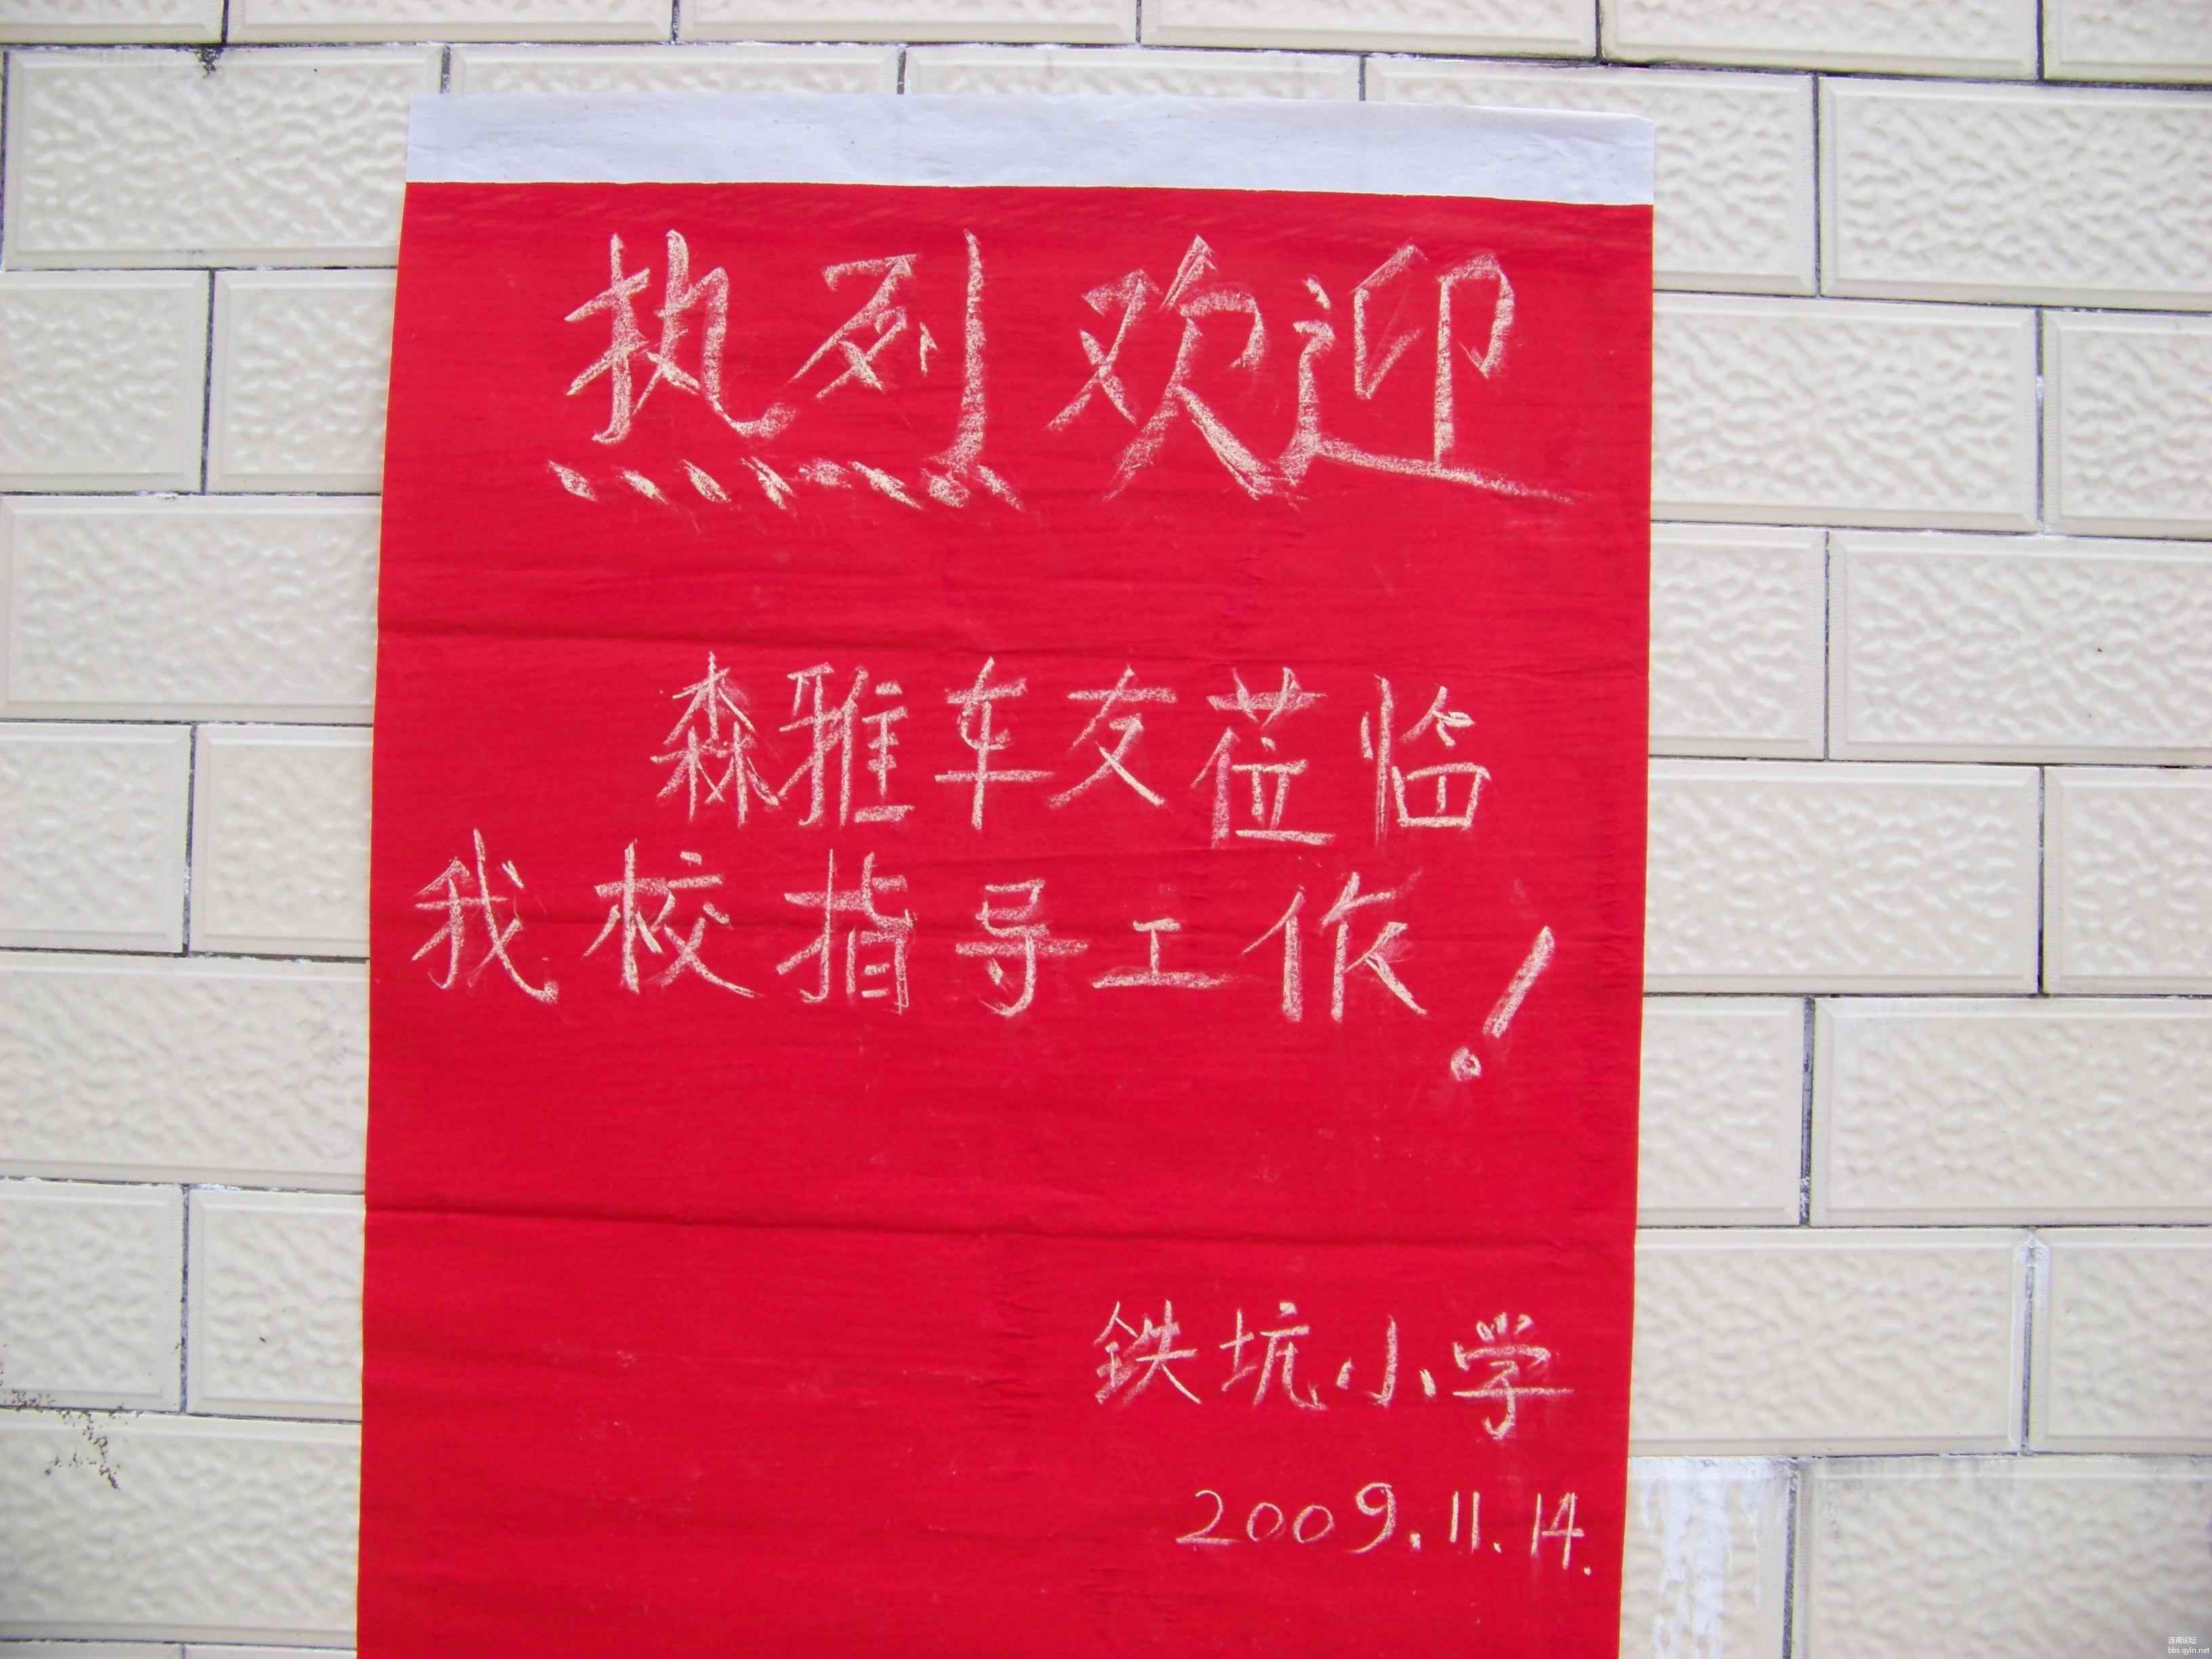 热烈欢迎
森雅车友莅临
我校指导工作!
鉄坑小学
2009.11.14.
连南论坛
bbs.qyln.net